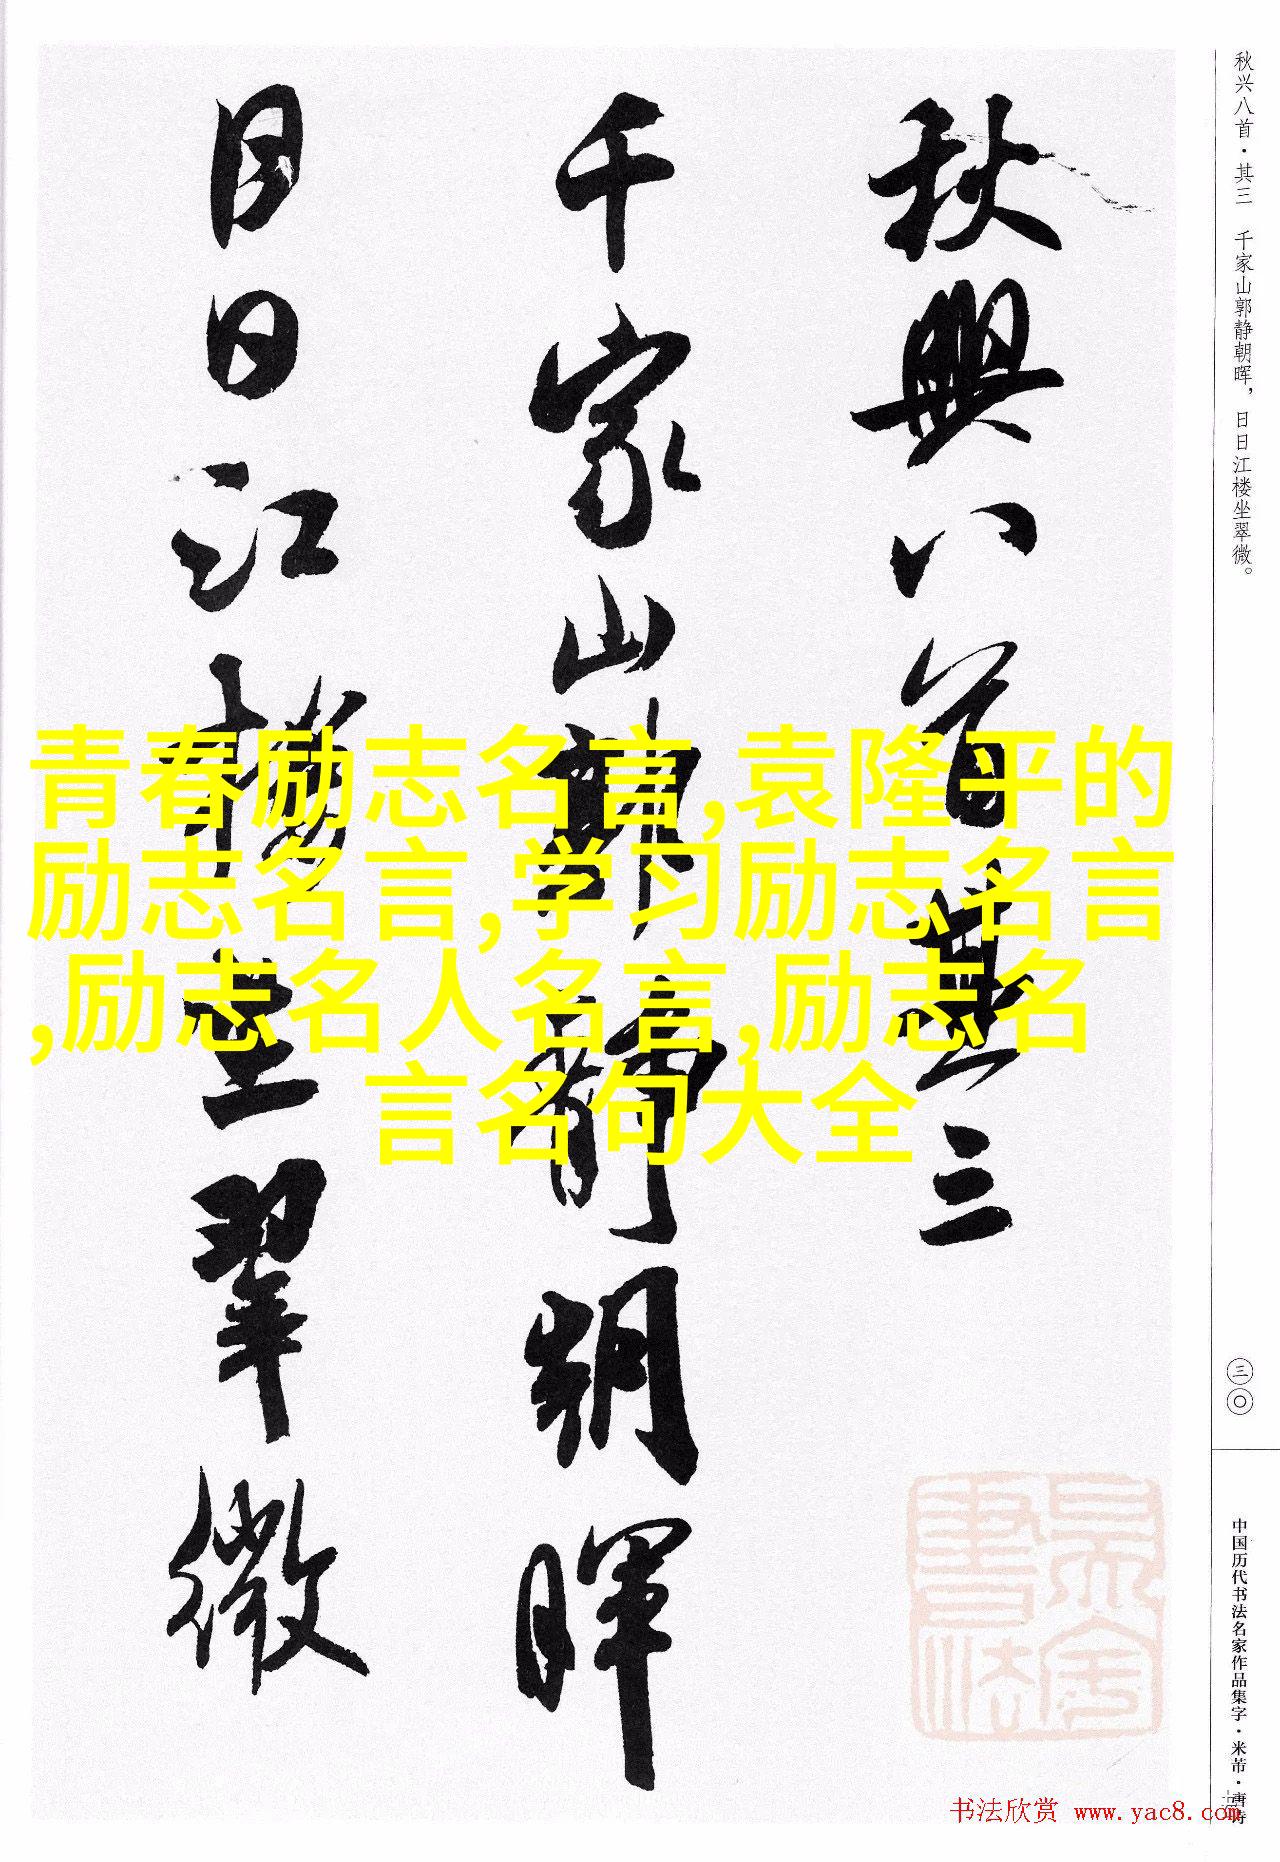 秋兴八首·其三　千家山郭静朝晖，日日江楼坐翠微。
秋興八首其三
千家山郭静朝暉
日日江樓坐翠微
青春励志名言,袁隆平的
励志名言,学习励志名言
,励志名人名言,励志名
言名句大全
三〇
中国历代书法名家作品集字·米芾·唐诗
书法欣赏 www.yac8.com